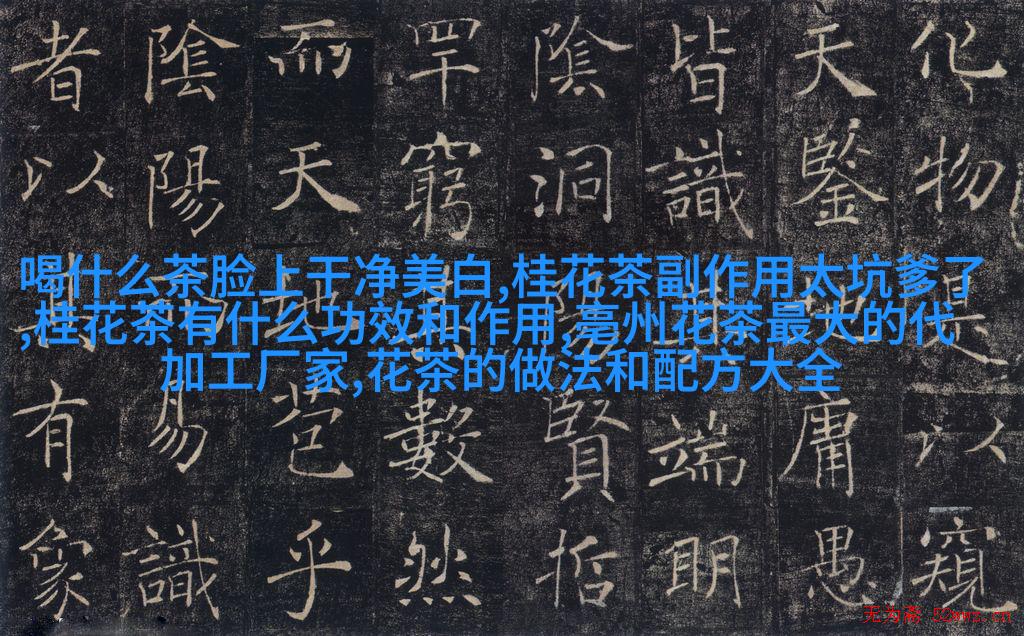 喝什么茶脸上干净美白,桂花茶副作用太坑爹了
,桂花茶有什么功效和作用,亳州花茶最大的代
加工厂家,花茶的做法和配方大全
化物是以窺
天鑒地庸愚
皆識端明
陰洞陽賢哲
罕窮其數然
而天地苞乎
陰陽易識
者以其有象
无为斋 52wwz.cn